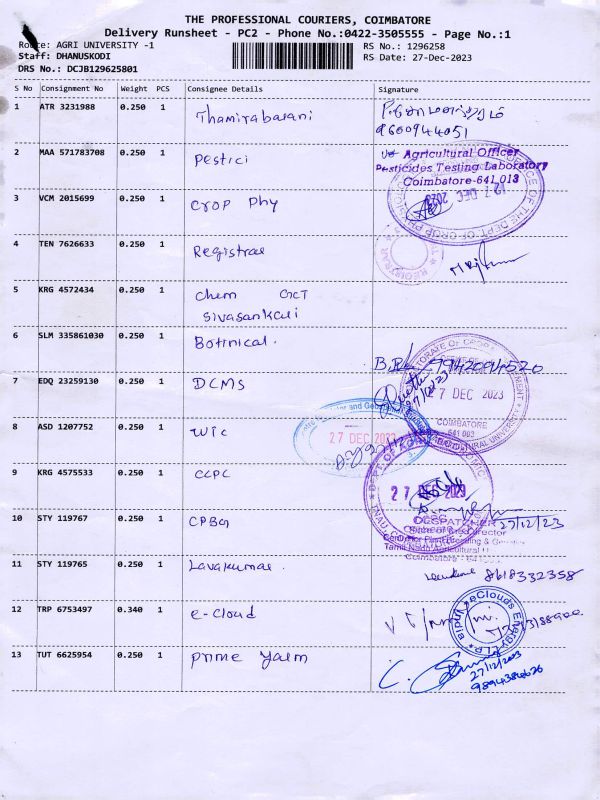 THE PROFESSIONAL COURIERS, COIMBATORE
Delivery Runsheet - PC2 - Phone No.:0422-3505555 - Page No.:1
Route: AGRI UNIVERSITY -1 RS No.: 1296258
Staff: DHANUSKODI RS Date: 27-Dec-2023
DRS No.: DCJB129625801
S No Consignment No Weight PCS Consignee Details Signature
1 ATR 3231988 0.250 1 Thamirabarani
9600944051
2 MAA 571783708 0.250 1 Pestici
Agricultural Officer
Pesticides Testing Laboratory
Coimbatore-641 013
3 VCM 2015699 0.250 1 Crop Phy
27 DEC 2023
4 TEN 7626633 0.250 1 Registrar
REGISTRAR
5 KRG 4572434 0.250 1 Chem
Sivasankari
6 SLM 335861030 0.250 1 Botinical.
7 EDQ 23259130 0.250 1 DCMS
7 DEC 2023
COIMBATORE
641 003
8 ASD 1207752 0.250 1 WTC
27 DEC 2023
9 KRG 4575533 0.250 1 CCPC
27 DEC 2023
10 STY 119767 0.250 1 CPBG
27/12/23
11 STY 119765 0.250 1 Lavakumar.
8618332358
12 TRP 6753497 0.340 1 e-Cloud
eClouds Energy LLP
13 TUT 6625954 0.250 1 Prime Yarm
27/12/2023